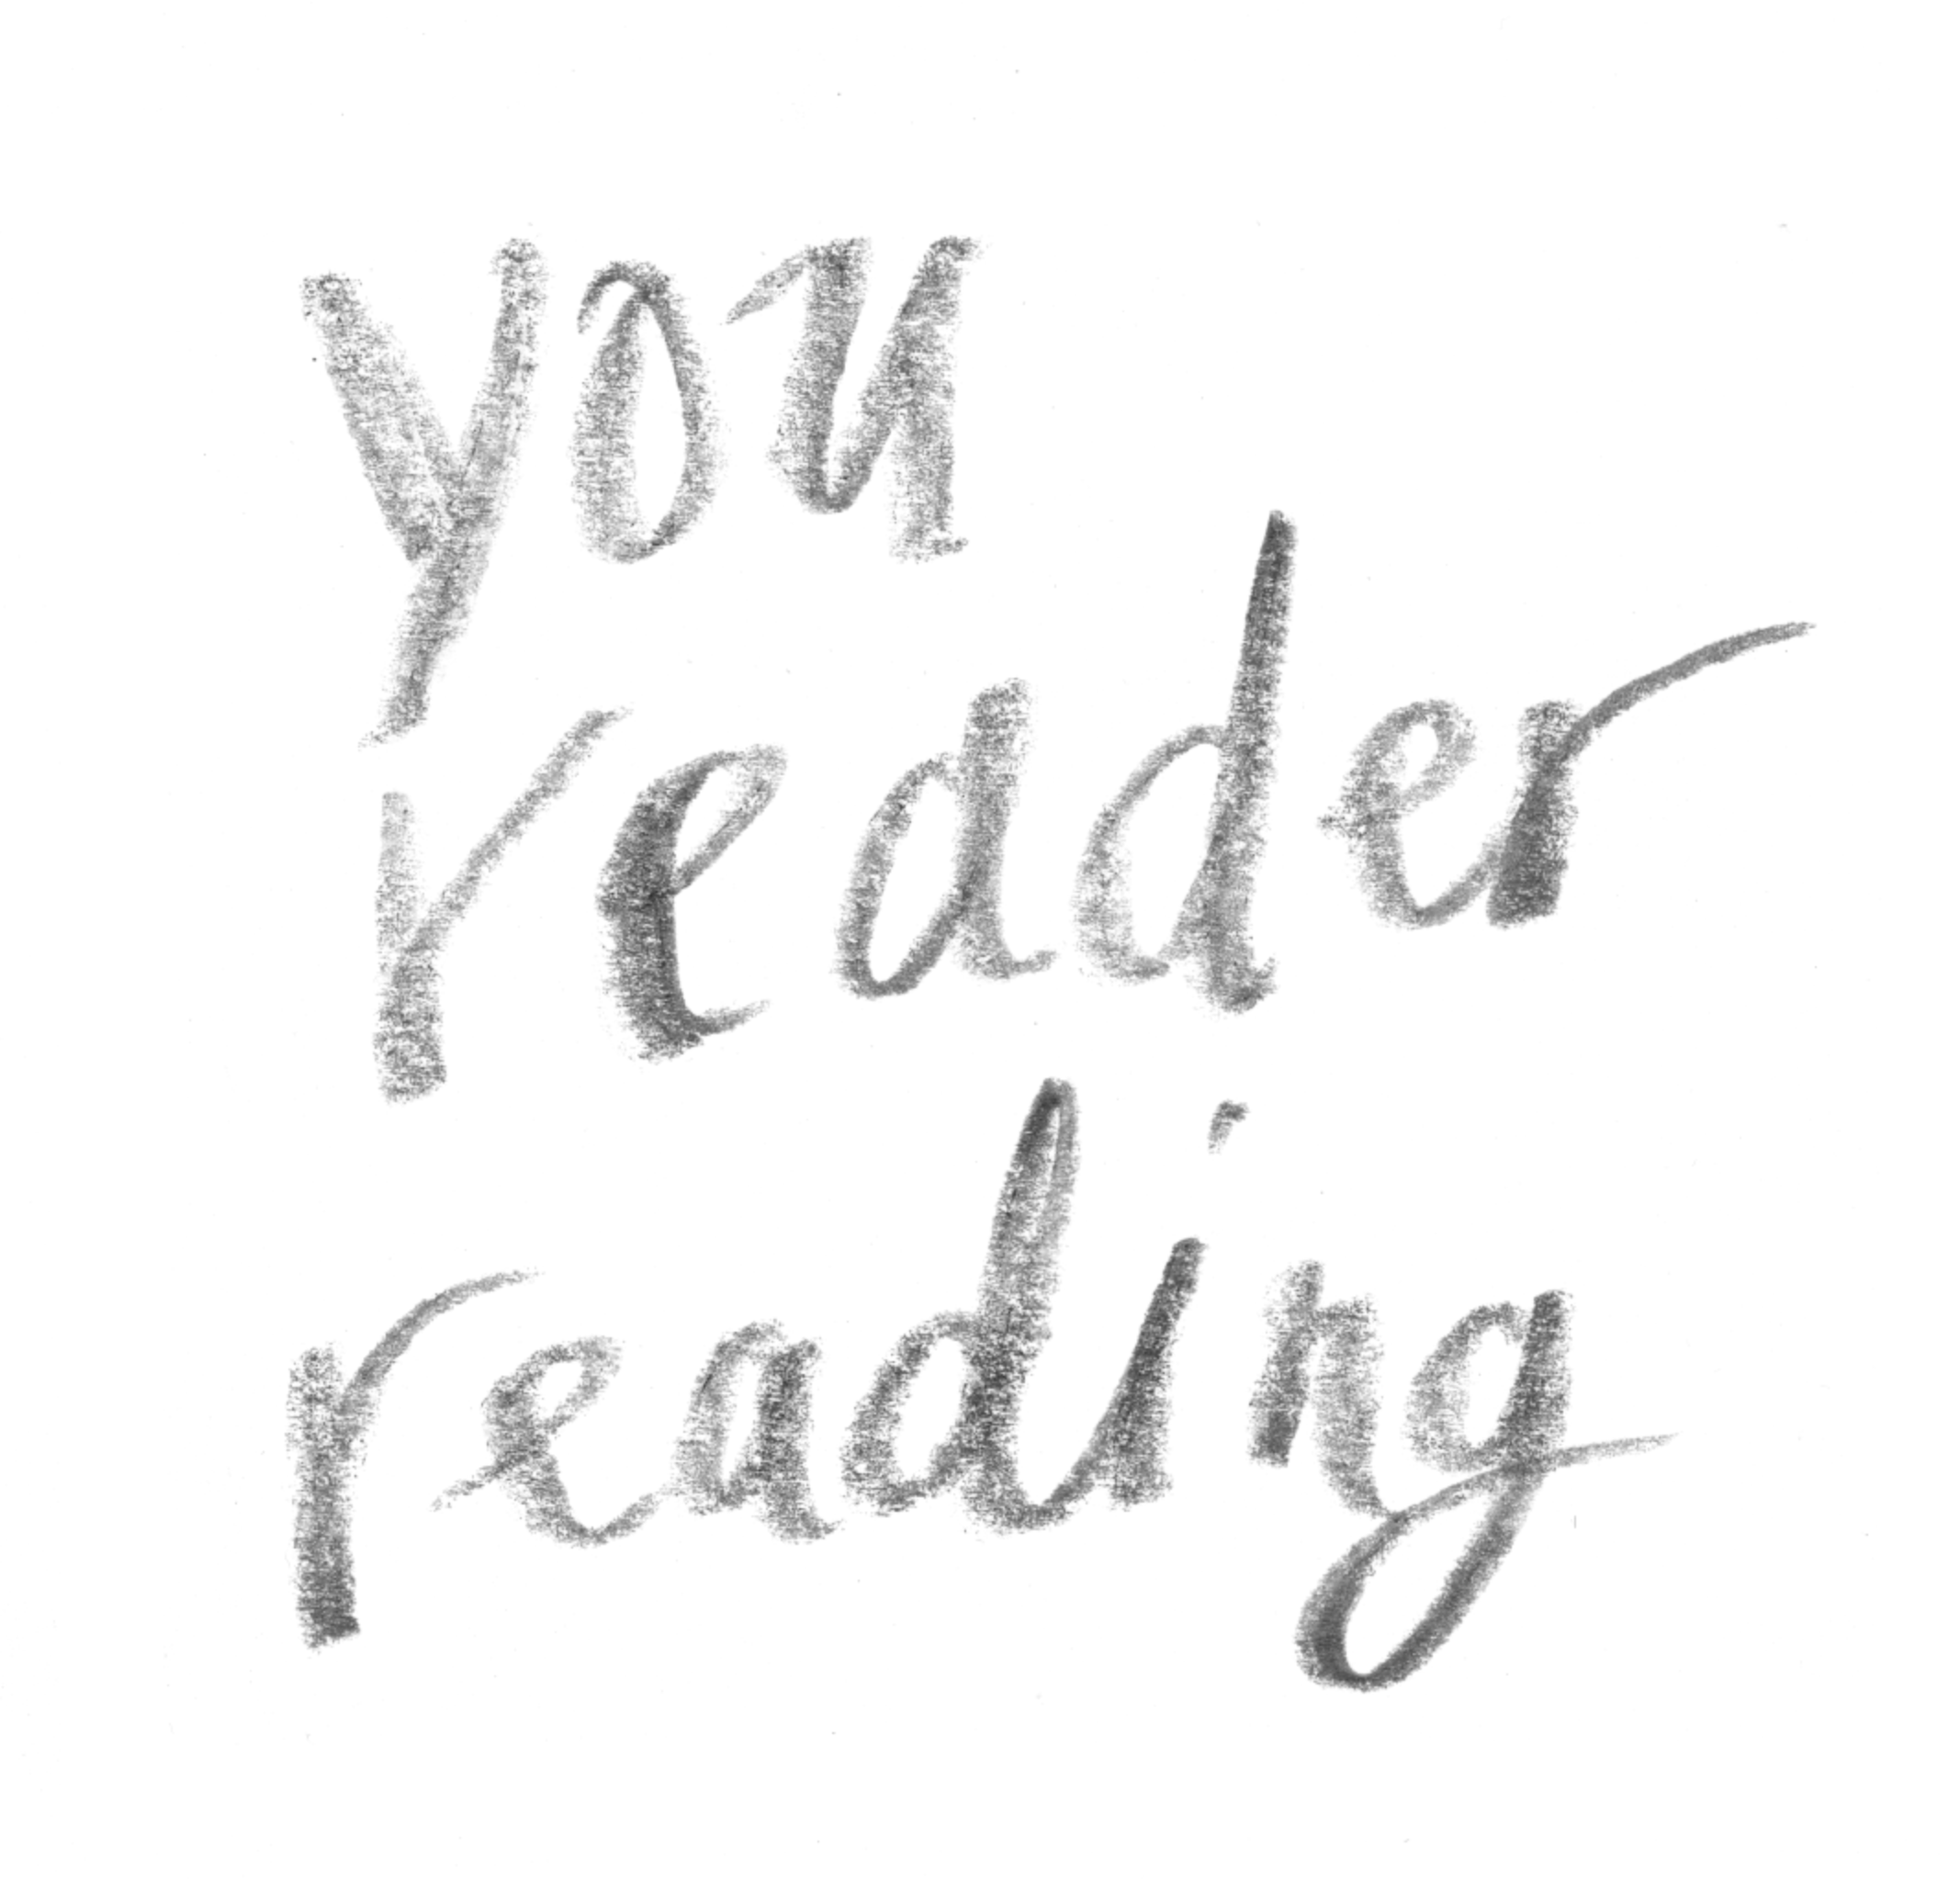 you
reader
reading